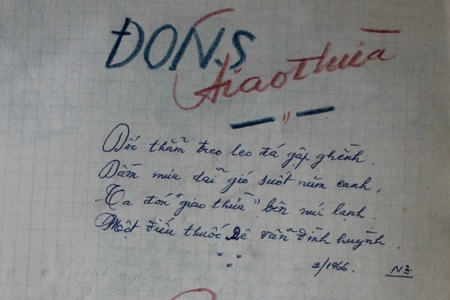 ĐÓN.S
Giao thừa
Dốc thẳm treo leo đá gập ghềnh.
Dầm mưa dãi gió suốt năm canh,
Ta đón "giao thừa" bên núi lạnh.
Một điếu thuốc Lê vẫn đinh huỳnh.
2/1966. NZ